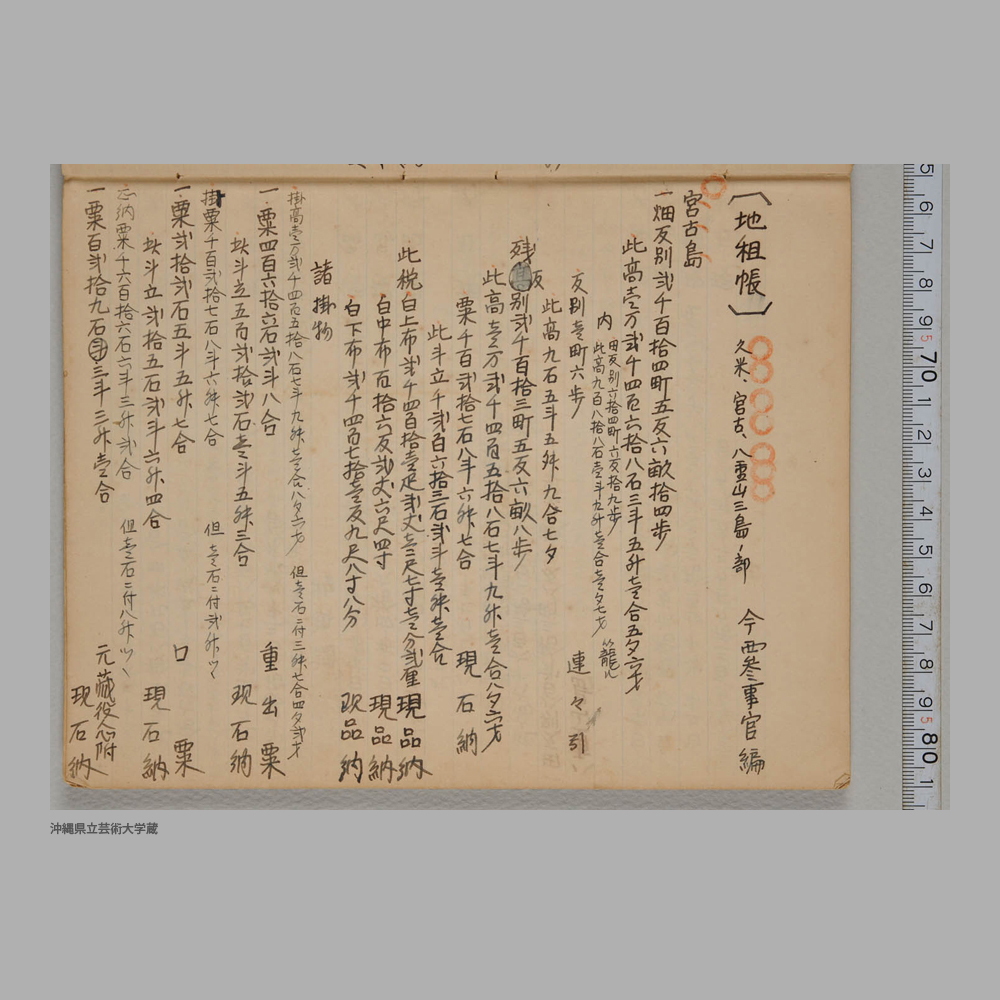 〔地租帳〕 久米、宮古、八重山三島ノ部 今西参事官編
宮古島
一畑反別弐千百拾四町五反六畝拾四歩
此高壱万弐千四百六拾八石三斗五升壱合五夕六才
内 田反別六拾四町六反拾九歩
此高九百八拾八石壱斗九升壱合壱夕七才
反別壱町六歩 連々引
此高九石五斗五升九合七夕
残高反別弐千百拾三町五反六畝八歩
此高壱万弐千四百五拾八石七斗九升壱合八夕六才
粟千百弐拾七石八斗六升七合 現石納
此斗立千弐百六拾三石弐斗壱升壱合
此税白上布弐千四百拾壱疋弐丈壱尺七寸壱分弐厘 現品納
白中布百拾六反弐丈六尺四寸 現品納
白下布弐千四百七拾壱反九尺八寸八分 現品納
諸掛物
掛高壱万弐千四百五拾八石七斗九升壱合八夕六才 但壱石ニ付三升七合四夕弐才
一粟四百六拾六石弐斗八合 重出粟
此斗立五百弐拾弐石壱斗五升三合 現石納
掛粟千百弐拾七石八斗六升七合 但壱石ニ付弐升ツヽ
一粟弐拾弐石五斗五升七合 口粟
此斗立弐拾五石弐斗六升四合 現石納
応納粟千六百拾六石六斗三升弐合 但壱石ニ付八升ツヽ
一粟百弐拾九石三斗三升壱合 元蔵役心附
現石納
沖縄県立芸術大学蔵